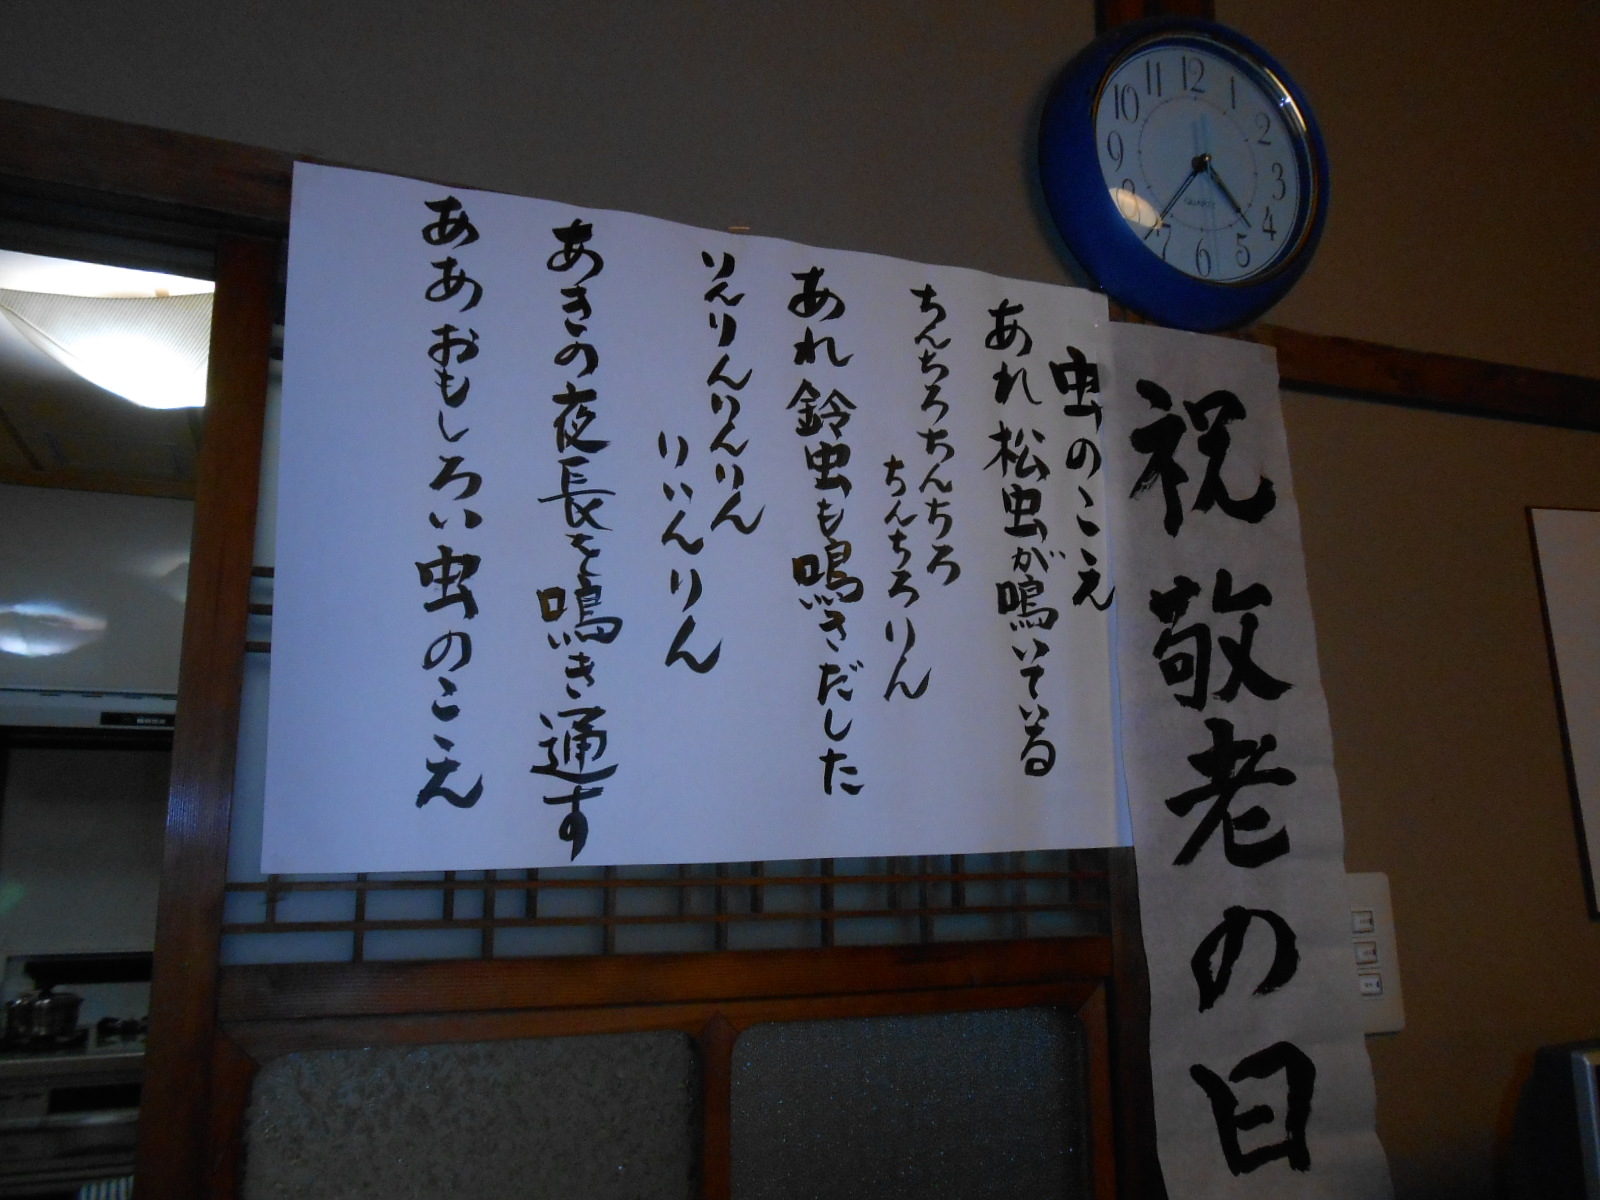 祝敬老の日
虫のこえ
あれ松虫が鳴いている
ちんちろちんちろ
ちんちろりん
あれ鈴虫も鳴きだした
りんりんりんりん
りいんりん
あきの夜長を鳴き通す
ああおもしろい虫のこえ
12
1
2
3
4
5
6
7
8
9
10
11
QUARTZ